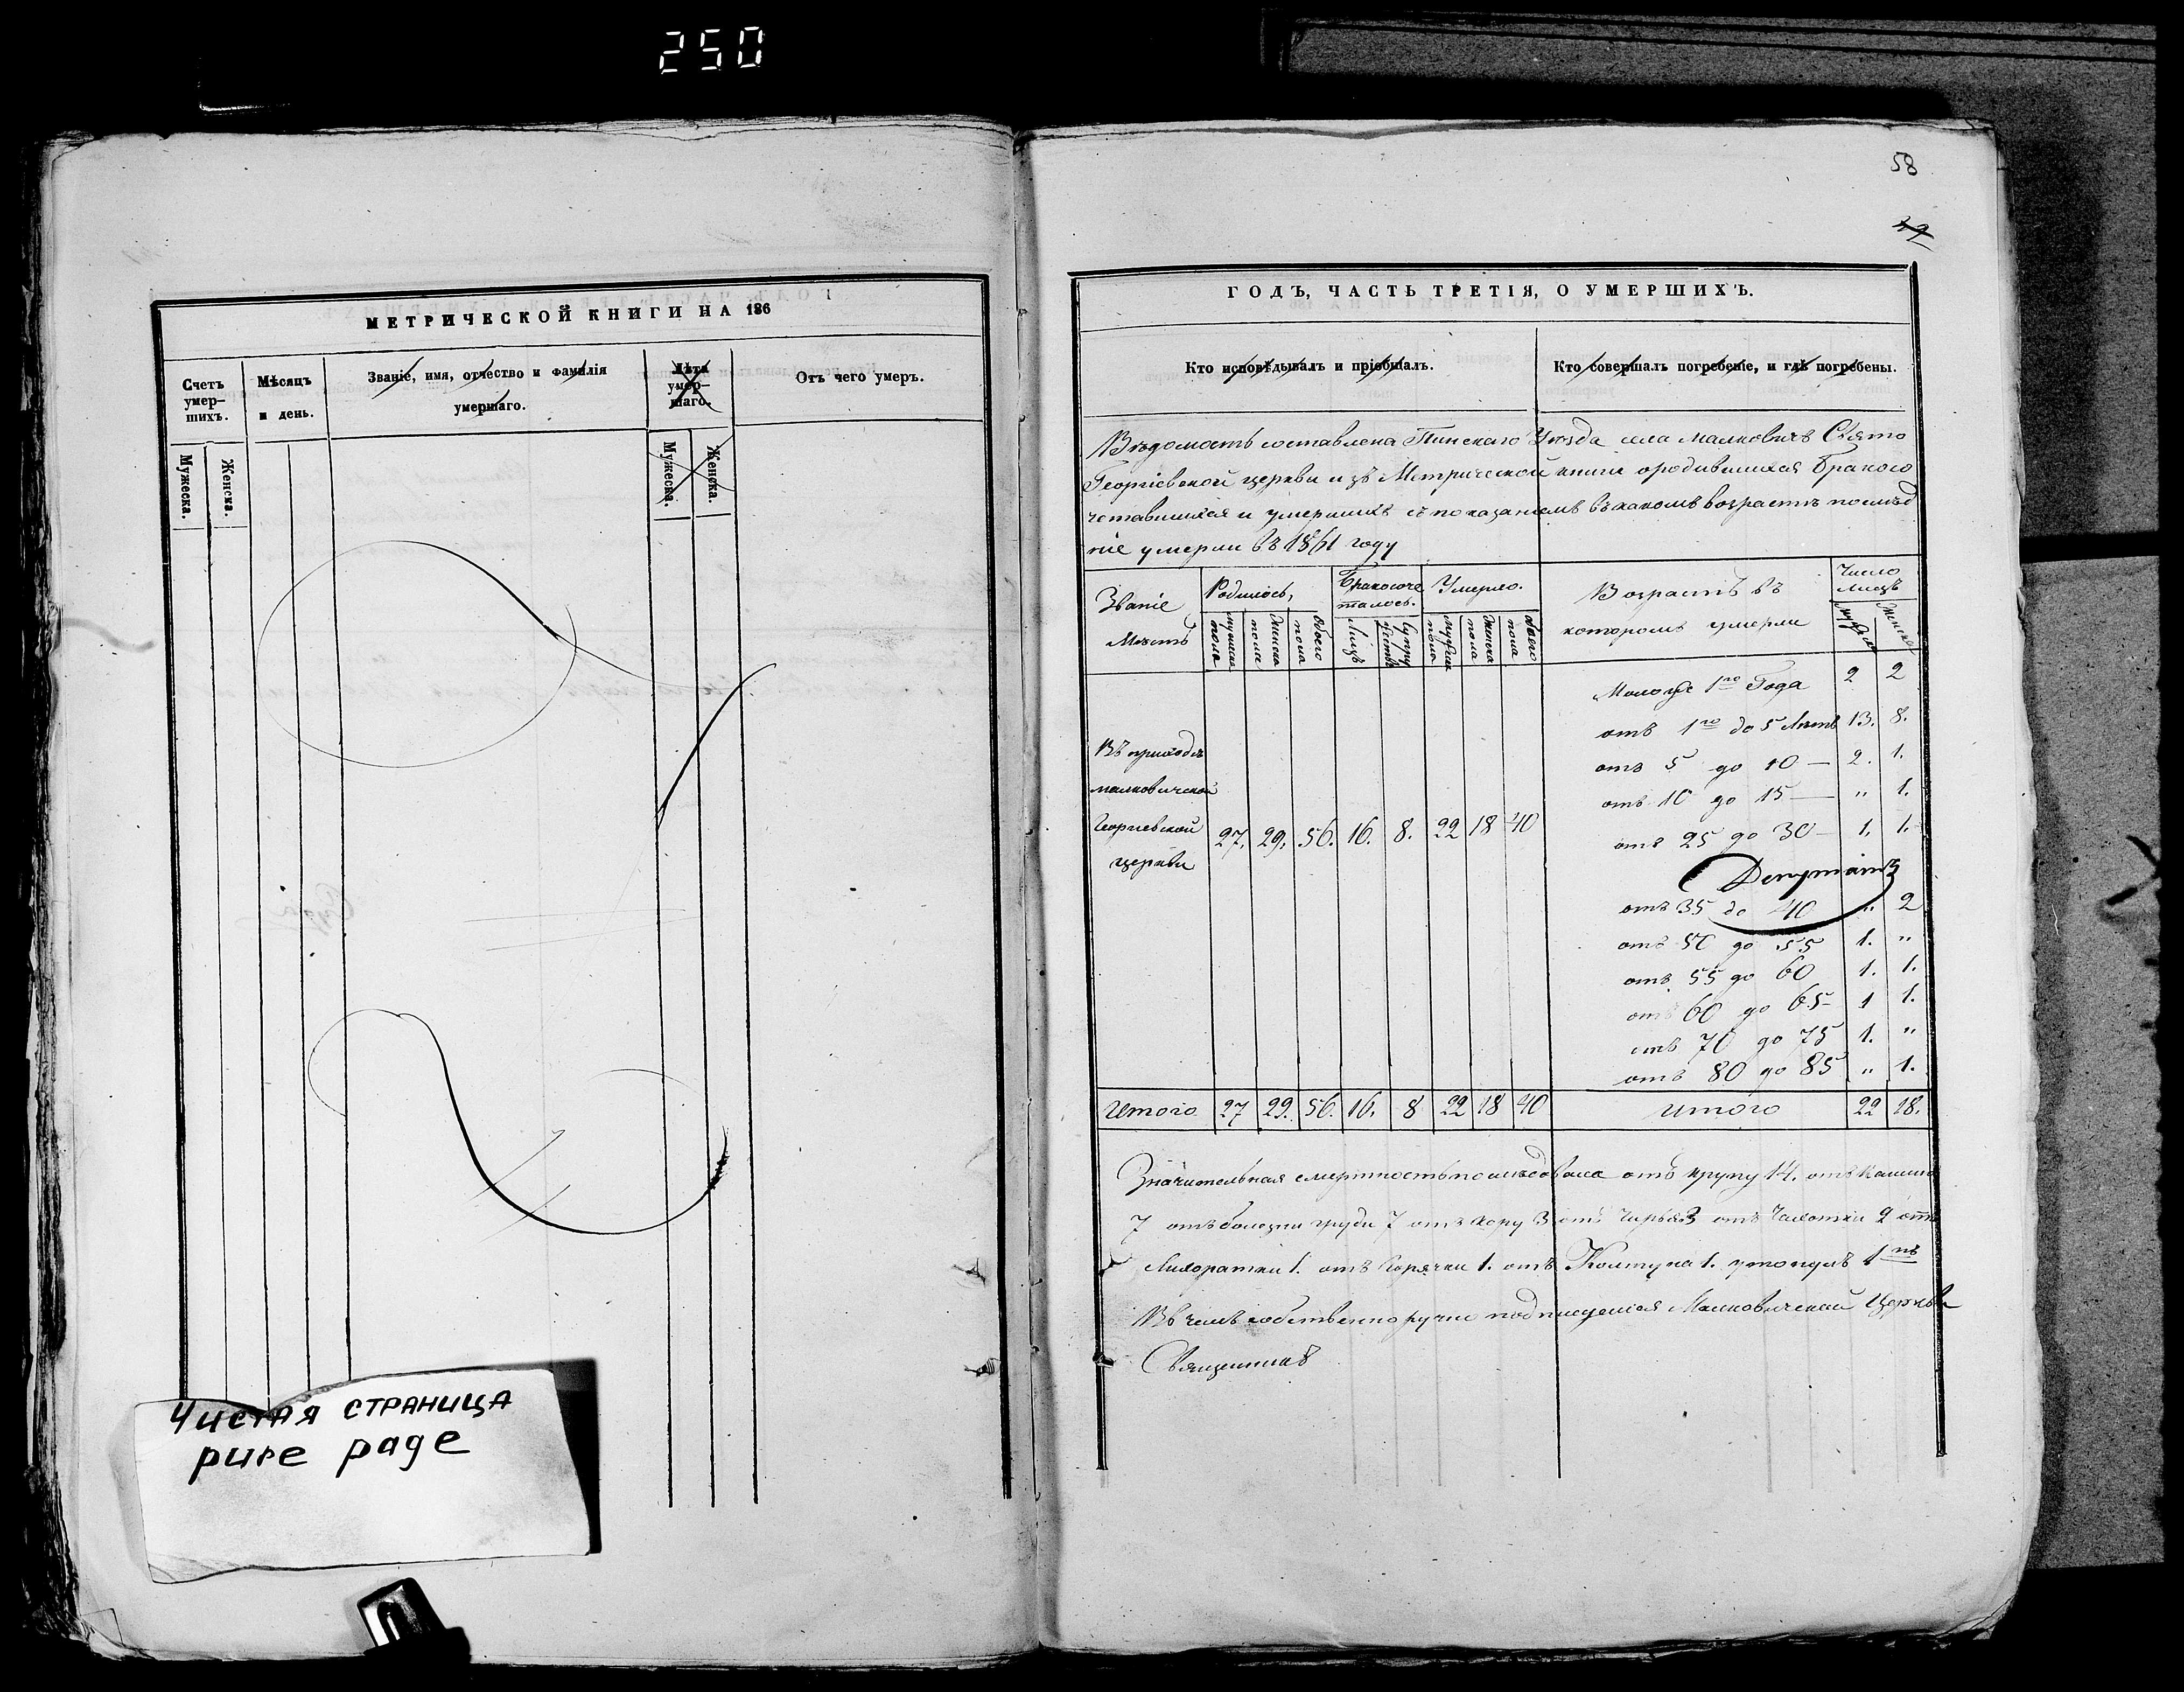 250
МЕТРИЧЕСКОЙ КНИГИ НА 186
Счетъ умер-шихъ.
Мѣсяцъ и день.
Званіе, имя, отчество и фамилія умершаго.
Лѣта умер-шаго.
Отъ чего умеръ.
Мужеска.
Женска.
Мужеска.
Женска.
Чистая страница
pure page
58
ГОДЪ, ЧАСТЬ ТРЕТІЯ, О УМЕРШИХЪ.
Кто исповѣдывалъ и пріобщалъ.
Кто совершалъ погребеніе, и гдѣ погребены.
Вѣдомость составлена Пинскаго Уѣзда села Малковичъ Свято
Георгіевской церкви изъ Метрической книги ородившихся Бракосо
четавшихся и умершихъ съ показаніемъ въ какомъ возрастѣ послѣд
ніе умерли въ 1861 году
Званіе Мѣстъ
Родилось,
Бракосоче талось.
Умерло.
Возрастъ въ которомъ умерли
Число лицъ
мужеска пола
женска пола
обоего пола
Лицъ
Супру жествъ
мужеска пола
женска пола
обоего пола
Мужеска
Женска
Въ приходѣ
малковичской
Георгіевской
церкви
27. 29. 56. 16. 8. 22 18 40
Моложе 1го Года 2 2
отъ 1го до 5 Лѣтъ 13. 8.
отъ 5 до 10 — 2. 1.
отъ 10 до 15 — " 1.
отъ 25 до 30 — 1. 1.
отъ 35 до 40 " 2
отъ 50 до 55 1. "
отъ 55 до 60 1. 1.
отъ 60 до 65 1 1.
отъ 70 до 75 1. "
отъ 80 до 85 " 1.
Итого 27 29. 56. 16. 8 22 18 40 Итого 22 18.
Значительная смертность послѣдовала отъ крупу 14. отъ Кашлю
7 отъ болезни груди 7 отъ кору 3 отъ Чирьевъ 3 отъ Чахотки 2 отъ
Лихорадки 1. отъ Горячки 1. отъ Колтуна 1. утонулъ 1нъ
Въ чемъ собственно ручно подписуемся Малковичской Церкви
Священникъ